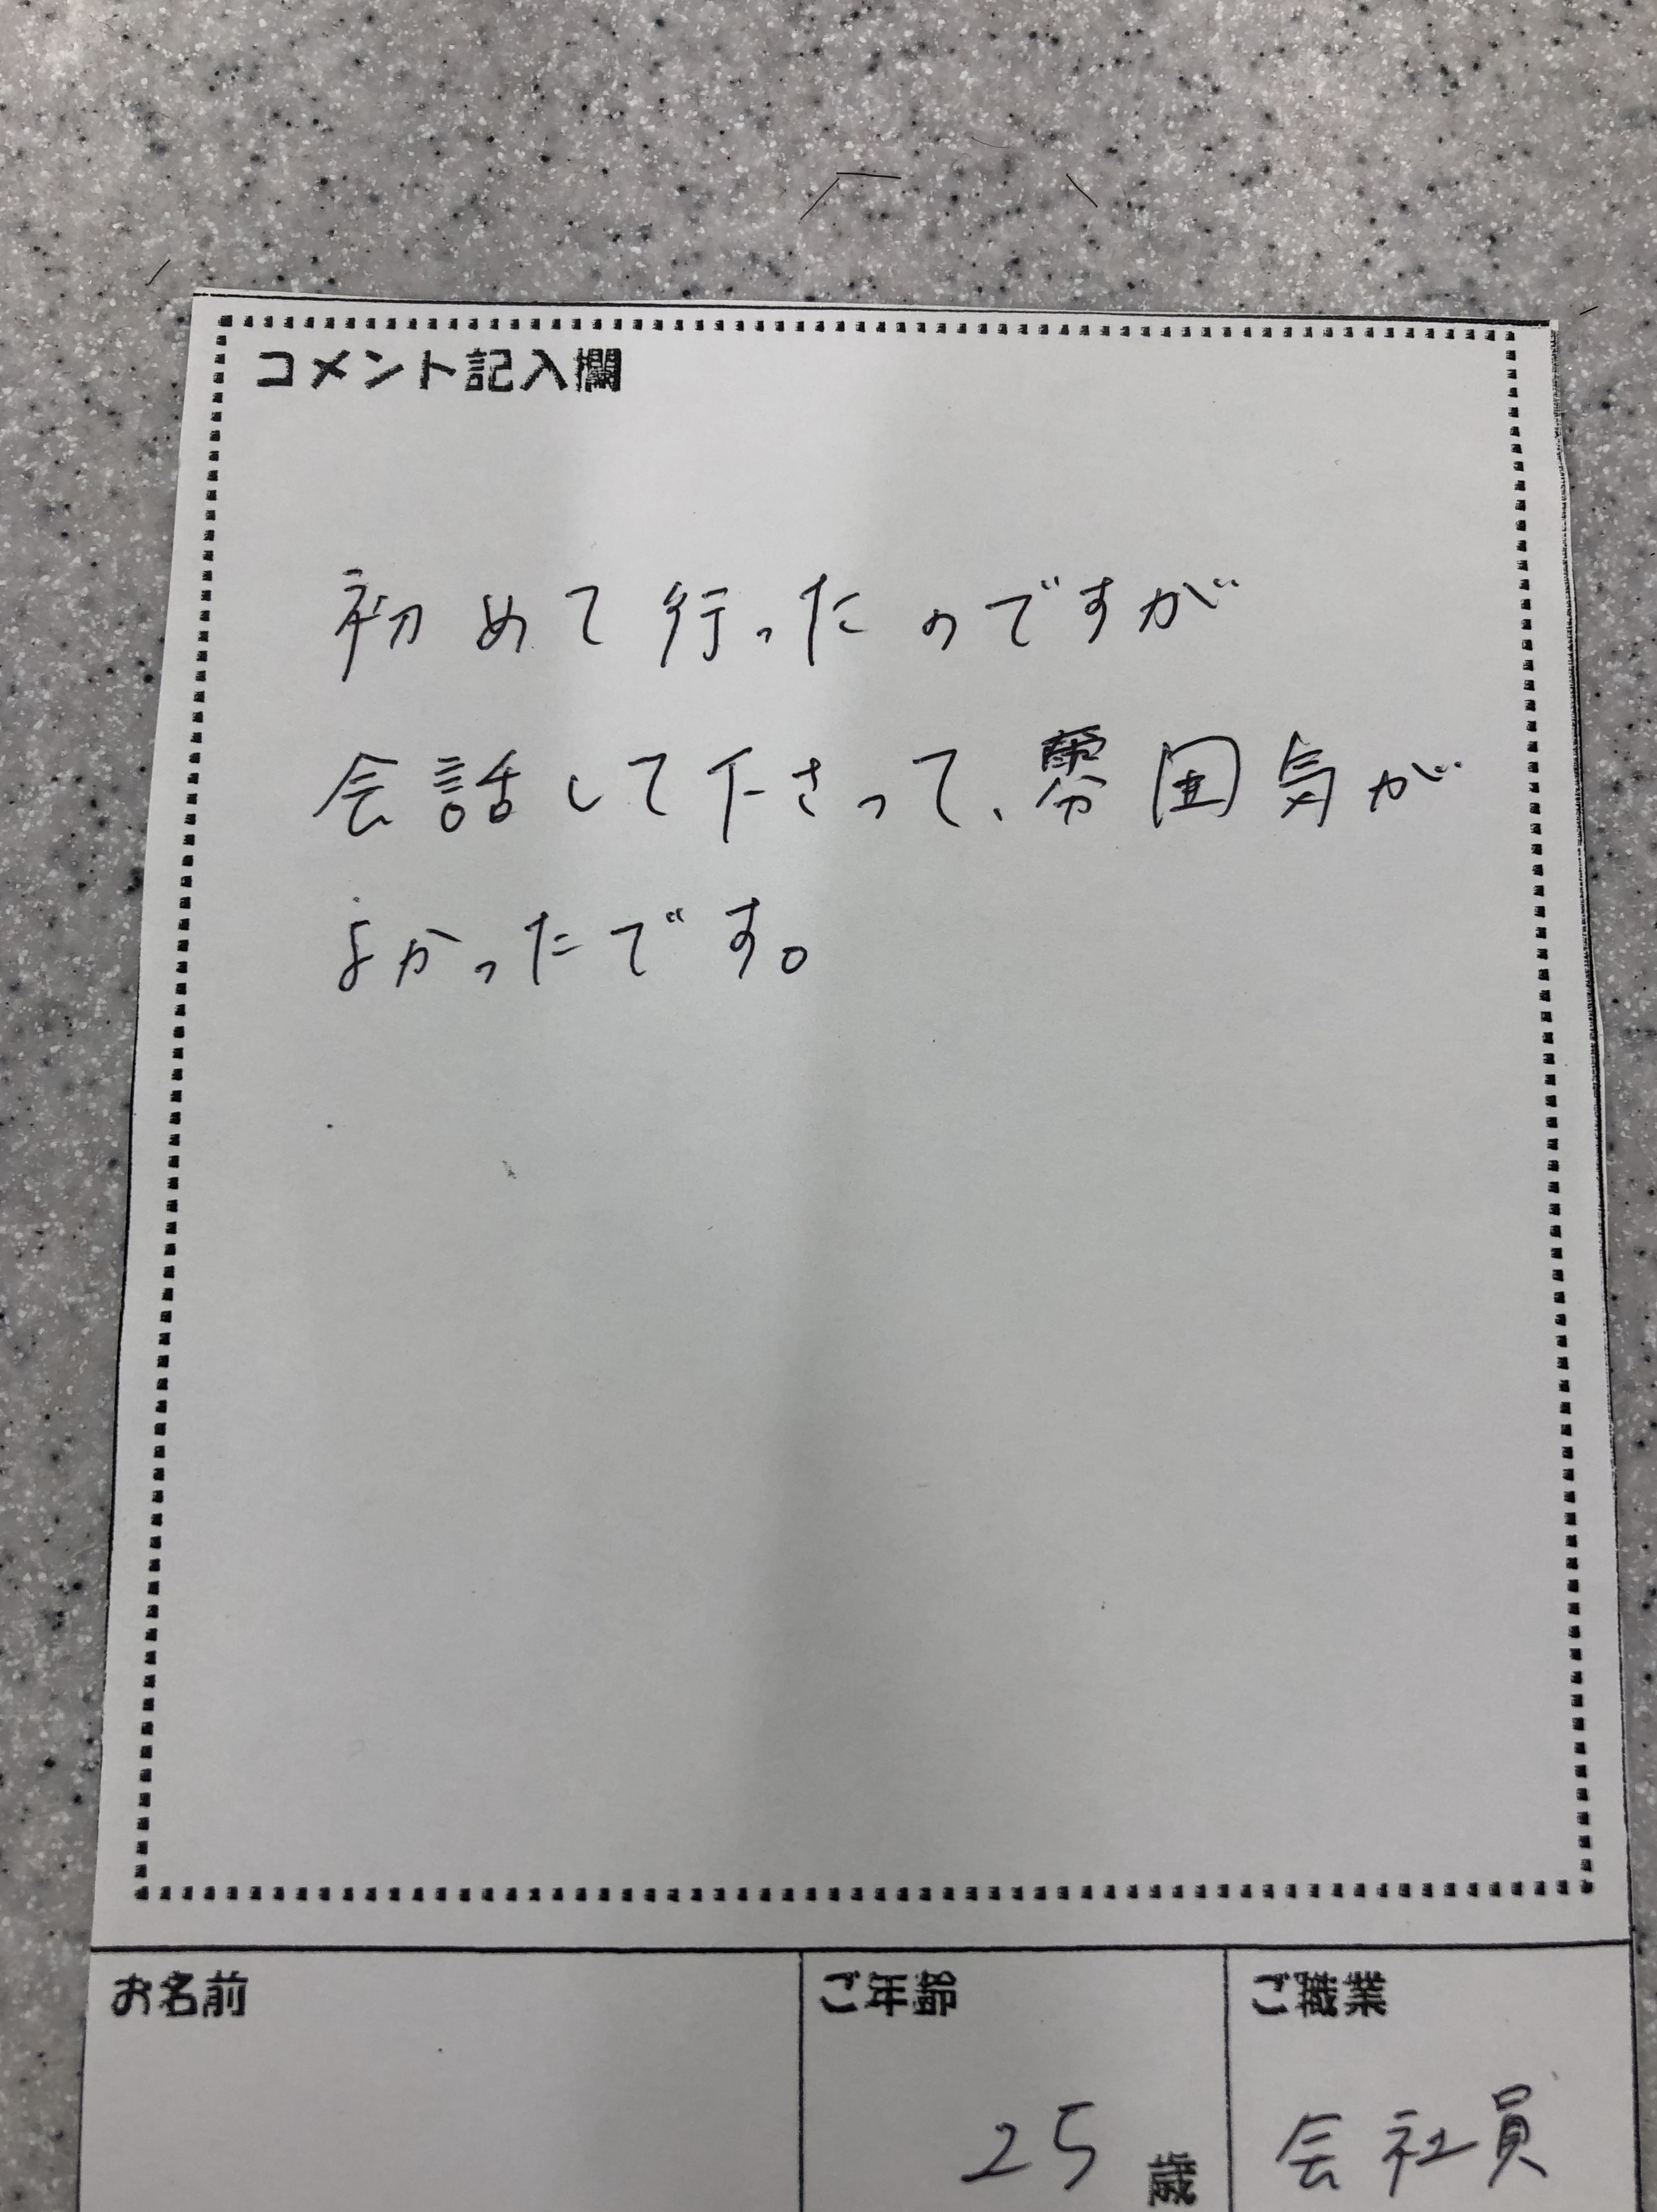 コメント記入欄
初めて行ったのですが
会話して下さって、雰囲気が
よかったです。
お名前
ご年齢
ご職業
25歳
会社員